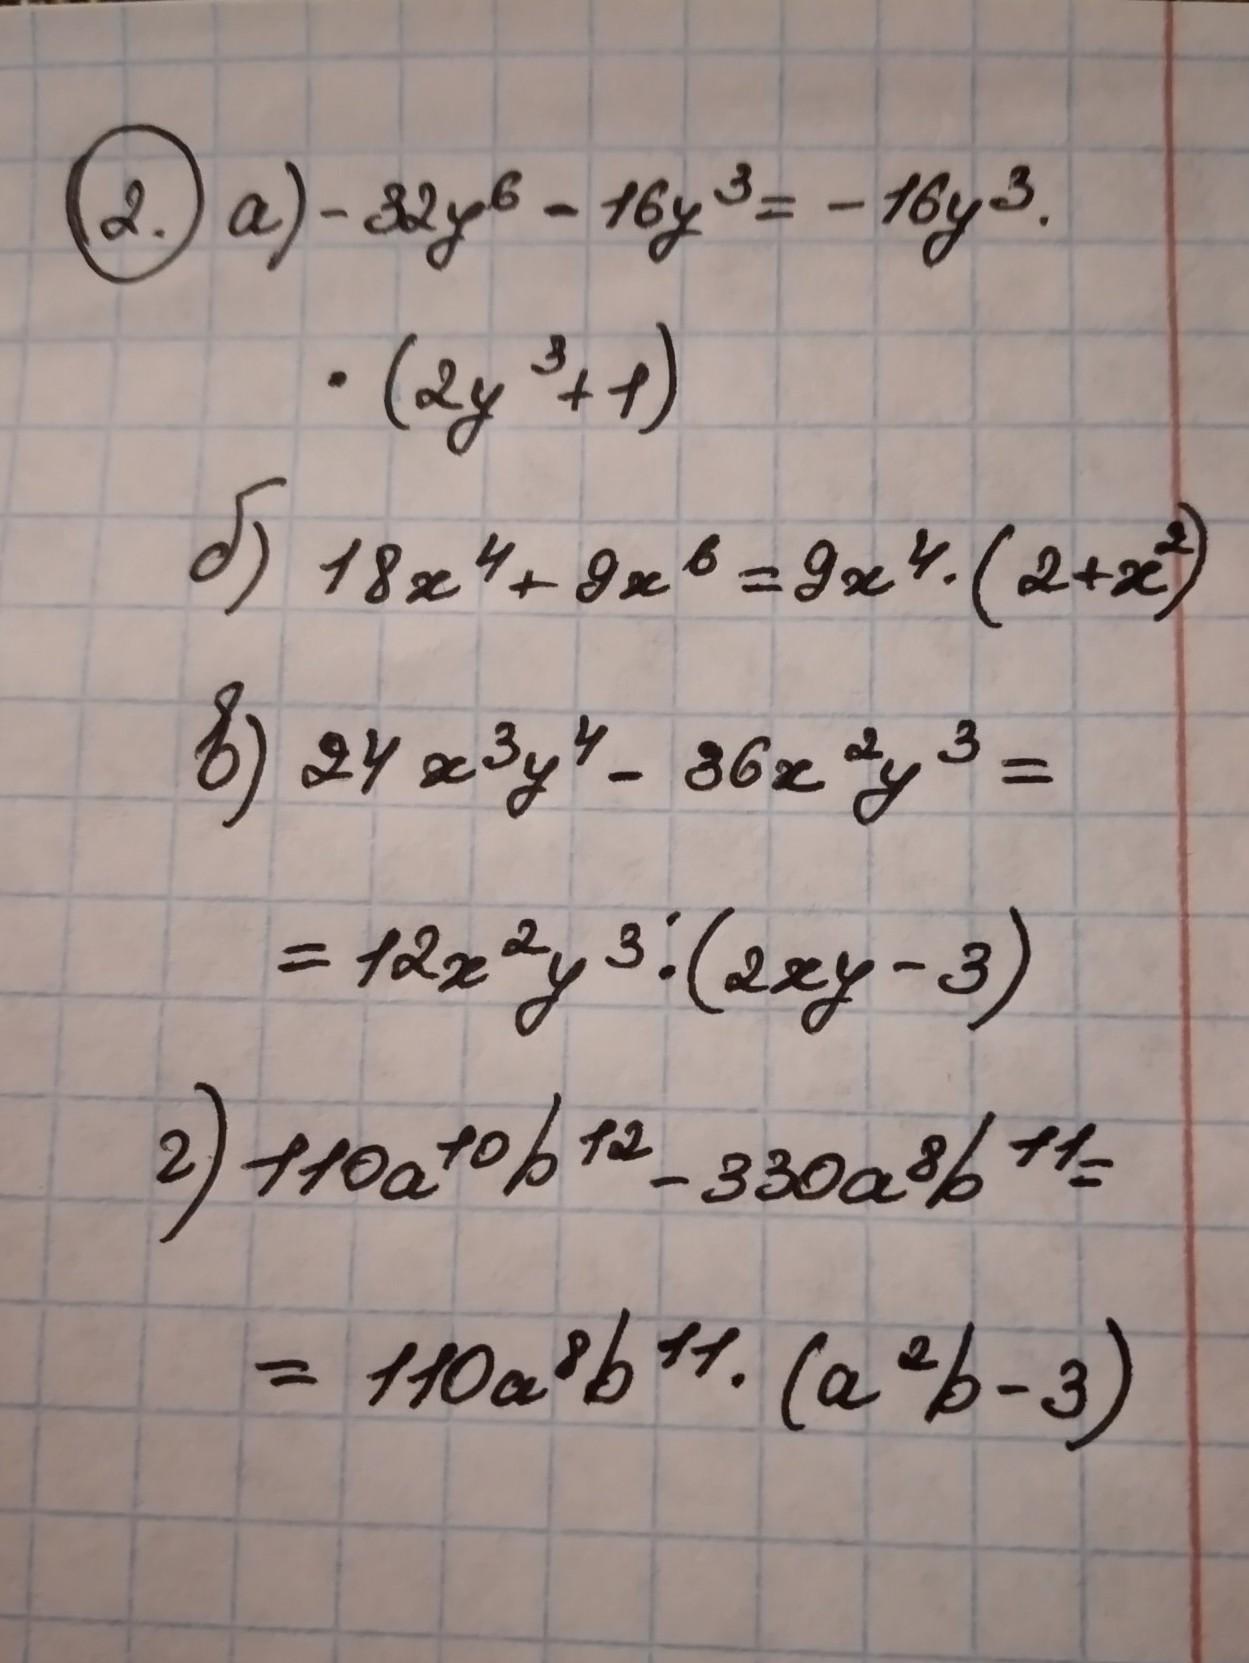 2. а) - 32y⁶ - 16y³ = - 16y³ ·
· (2y³ + 1)
б) 18x⁴ + 9x⁶ = 9x⁴ · (2 + x²)
в) 24x³y⁴ - 36x²y³ =
= 12x²y³ · (2xy - 3)
г) 110a¹⁰b¹² - 330a⁸b¹¹ =
= 110a⁸b¹¹ · (a²b - 3)